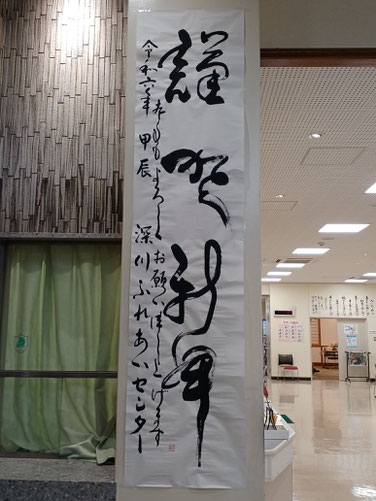 謹賀新年
本年もよろしくお願い申し上げます
令和六年 甲辰 深川ふれあいセンター